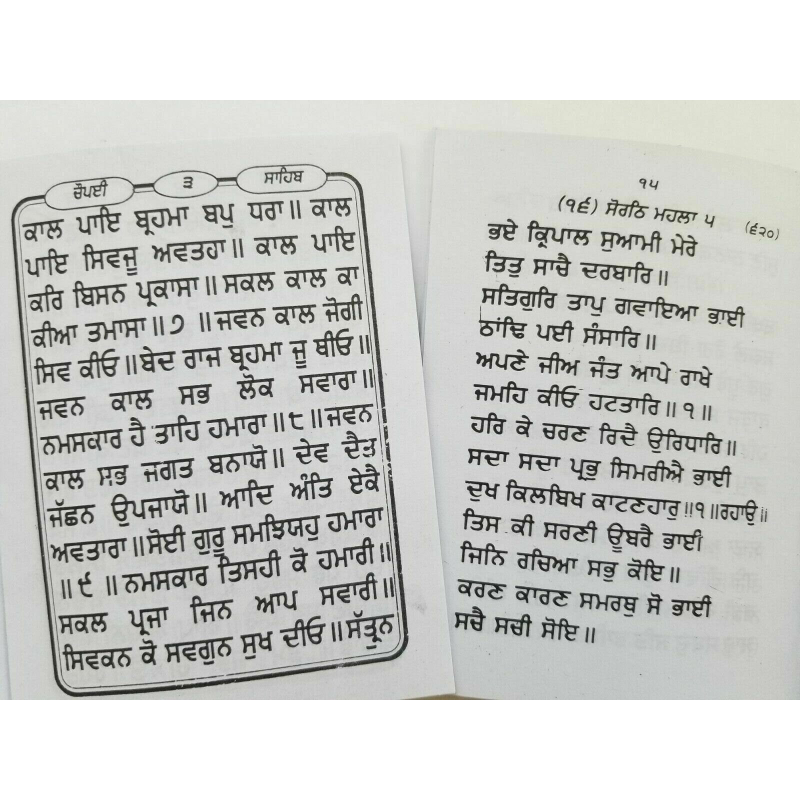 ਚੌਪਈ ੩ ਸਾਹਿਬ
ਕਾਲ ਪਾਇ ਬ੍ਰਹਮਾ ਬਪੁ ਧਰਾ॥ ਕਾਲ
ਪਾਇ ਸਿਵਜੂ ਅਵਤਰਾ॥ ਕਾਲ ਪਾਇ
ਕਰਿ ਬਿਸਨ ਪ੍ਰਕਾਸਾ॥ ਸਕਲ ਕਾਲ ਕਾ
ਕੀਆ ਤਮਾਸਾ॥੭॥ਜਵਨ ਕਾਲ ਜੋਗੀ
ਸਿਵ ਕੀਓ॥ਬੇਦ ਰਾਜ ਬ੍ਰਹਮਾ ਜੂ ਥੀਓ॥
ਜਵਨ ਕਾਲ ਸਭ ਲੋਕ ਸਵਾਰਾ॥
ਨਮਸਕਾਰ ਹੈ ਤਾਹਿ ਹਮਾਰਾ॥੮॥ਜਵਨ
ਕਾਲ ਸਭ ਜਗਤ ਬਨਾਯੋ॥ ਦੇਵ ਦੈਤ
ਜੱਛਨ ਉਪਜਾਯੋ॥ ਆਦਿ ਅੰਤਿ ਏਕੈ
ਅਵਤਾਰਾ॥ਸੋਈ ਗੁਰੂ ਸਮਝਿਯਹੁ ਹਮਾਰਾ
॥੯॥ ਨਮਸਕਾਰ ਤਿਸਹੀ ਕੋ ਹਮਾਰੀ॥
ਸਕਲ ਪ੍ਰਜਾ ਜਿਨ ਆਪ ਸਵਾਰੀ॥
ਸਿਵਕਨ ਕੋ ਸਵਗੁਨ ਸੁਖ ਦੀਓ॥ਸੱਤ੍ਰੁਨ
੧੫
(੧੬) ਸੋਰਠਿ ਮਹਲਾ ੫ (੬੨੦)
ਭਏ ਕ੍ਰਿਪਾਲ ਸੁਆਮੀ ਮੇਰੇ
ਤਿਤੁ ਸਾਚੈ ਦਰਬਾਰਿ॥
ਸਤਿਗੁਰਿ ਤਾਪੁ ਗਵਾਇਆ ਭਾਈ
ਠਾਂਢਿ ਪਈ ਸੰਸਾਰਿ॥
ਅਪਣੇ ਜੀਅ ਜੰਤ ਆਪੇ ਰਾਖੇ
ਜਮਹਿ ਕੀਓ ਹਟਤਾਰਿ॥੧॥
ਹਰਿ ਕੇ ਚਰਣ ਰਿਦੈ ਉਰਿਧਾਰਿ॥
ਸਦਾ ਸਦਾ ਪ੍ਰਭੁ ਸਿਮਰੀਐ ਭਾਈ
ਦੁਖ ਕਿਲਬਿਖ ਕਾਟਣਹਾਰੁ॥੧॥ਰਹਾਉ॥
ਤਿਸ ਕੀ ਸਰਣੀ ਊਬਰੈ ਭਾਈ
ਜਿਨਿ ਰਚਿਆ ਸਭੁ ਕੋਇ॥
ਕਰਣ ਕਾਰਣ ਸਮਰਥੁ ਸੋ ਭਾਈ
ਸਚੈ ਸਚੀ ਸੋਇ॥